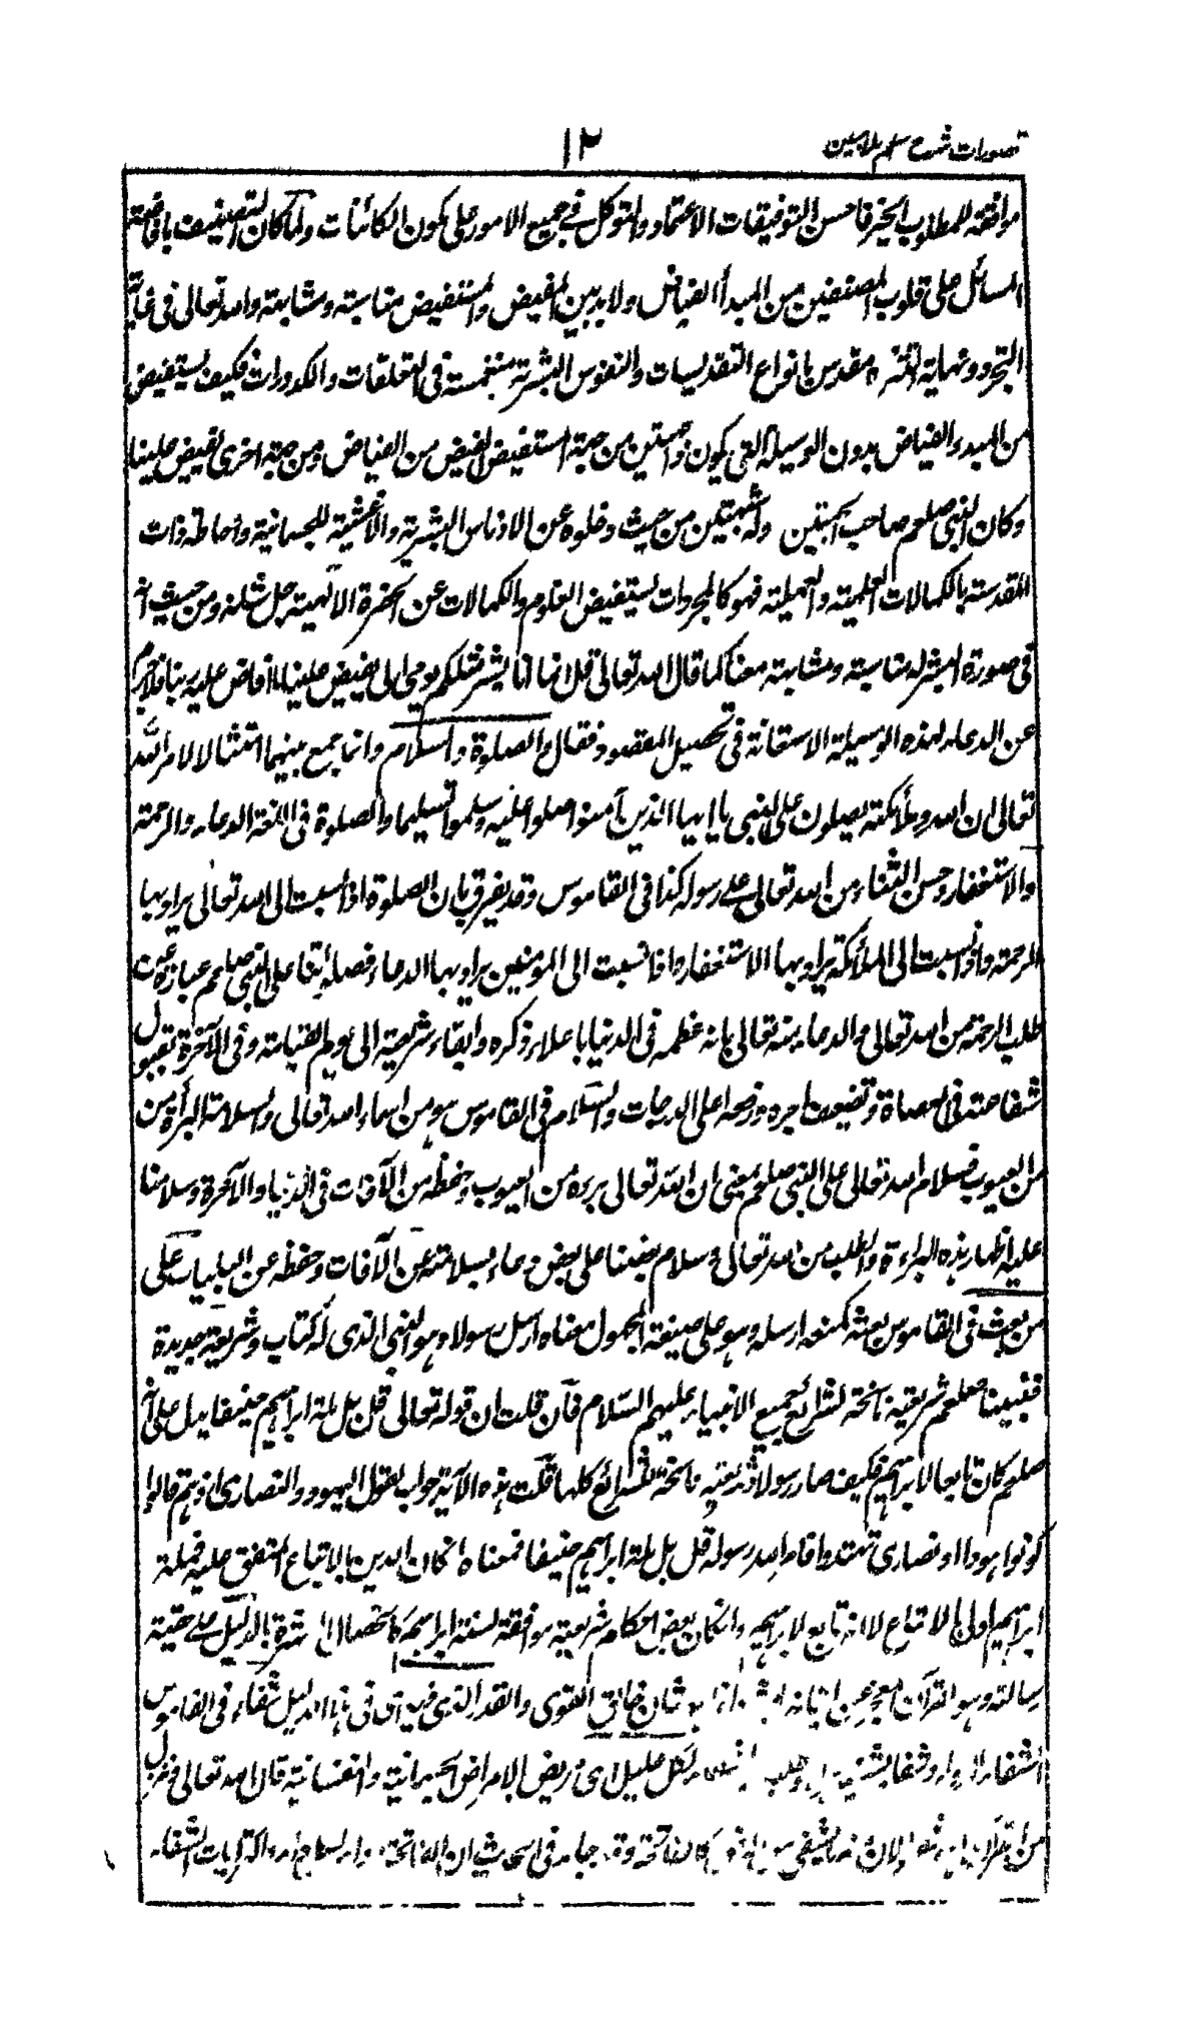 تصورات شرح سلم ملامبین
١٢
موافقة للمطلوب الخير فاحسن التوفيقات الاعتماد والتوكل في جميع الامور على مكون الكائنات ولما كان التصنيف بافاضة
المسائل على قلوب المصنفين من المبدأ الفياض ولا بد بين المفيض والمستفيض مناسبة ومشابهة والله تعالى فى غاية
التجرد ونهاية التنزه مقدس بانواع التقديسات والنفوس البشرية منغمسة فى التعلقات والكدورات فكيف يستفيض
من المبدء الفياض بدون الوسيلة التى يكون ذا جهتين من جهة استفيض لفيض من الفياض ومن جهة اخرى لفيض علينا
وكان النبى صلعم صاحب الجهتين وله شبهتين من حيث وخلوه عن الادناس البشرية والاغشية للجسمانية واحاطة ذات
المقدسة بالكمالات العلمية والعملية فهو كالمجردات يستفيض العلوم والكمالات عن الحضرة الالهية جل شانه ومن حيث انه
فى صورة البشر له مناسبة ومشابهة معنا كما قال الله تعالى قل انما انا بشر مثلكم يوحى الى يفيض علينا ما افاض عليه ربنا فلابد
عن الدعاء لهذه الوسيلة الاستعانة فى تحصيل المقصود فقال والصلوة والسلام وانما جمع بينهما امتثالا لامر الله
تعالى ان الله وملئكته يصلون على النبى يا ايها الذين آمنوا صلوا عليه وسلموا تسليما والصلوة فى اللغة الدعاء والرحمة
والاستغفار وحسن الثناء من الله تعالى على رسوله كذا فى القاموس وقد يفرق بان الصلوة اذا نسبت الى الله تعالى يراد بها
الرحمة واذا نسبت الى الملئكة يراد بها الاستغفار واذا نسبت الى المؤمنين يراد بها الدعاء فصلوتنا على النبى صلعم عبارة عن
طلب الرحمة من الله تعالى والدعاء منه تعالى بانه عظمه فى الدنيا باعلاء ذكره وابقاء شريعته الى يوم القيامة وفى الآخرة بقبول
شفاعته فى العصاة وتضعيف اجره ورفعه اعلى الدرجات والسلام فى القاموس هو من اسماء الله تعالى والسلامة البرأة من
من العيوب فسلام الله تعالى على النبى صلعم بمعنى ان الله تعالى برءه من العيوب وحفظه من الآفات فى الدنيا والآخرة وسلامنا
عليه اظهار هذه البراءة والطلب من الله تعالى وسلام بعضنا على بعض دعاء بسلامته عن الآفات وحفظه عن البليات على
من بعث فى القاموس بعثه كمنعه ارسله وهو على صيغة المجهول معناه ارسل رسولا وهو النبى الذى له كتاب وشريعة جديدة
فنبينا صلعم شريعته ناسخة لشرائع جميع الانبياء عليهم السلام فان قلت ان قوله تعالى قل بل ملة ابراهيم حنيفا يدل على انه
صلعم كان تابعا لابراهيم فكيف صار رسولا وشريعته ناسخة لشرائع كلها قلت هذه الآية جواب لقول اليهود والنصارى اذ هم قالوا
كونوا هودا او نصارى تهتدوا فامر الله رسوله قل بل ملة ابراهيم حنيفا فمعناه ان كان الدين بالاتباع المتفق عليه فملة
ابراهيم اولى بالاتباع لا انه تابع لابراهيم وان كان بعض احكام شريعته موافقة لسنة ابراهيم بالدليل على حقية
رسالته وهو القرآن معجز عن اتيانه شان خالق القوى والقدر الذى فيه اى فى هذا الدليل شفاء فى القاموس
لكل عليل اى مريض الامراض الجسمانية والنفسانية قال الله تعالى
من القرآن جاء فى الحديث ان الفاتحة آيات الشفاء